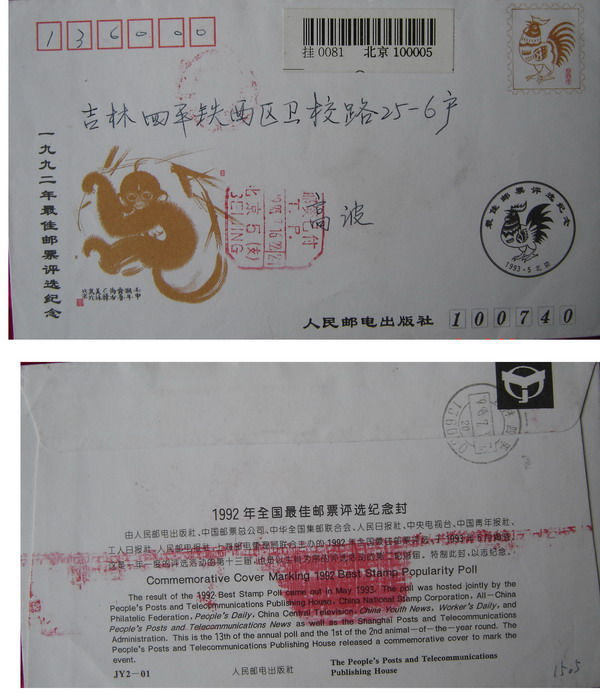 136000
挂 0081 北京 100005
吉林四平铁西区卫校路25-6户
高波
一九九二年最佳邮票评选纪念
北京
T.P.
最佳邮票评选纪念
1993·5 北京
人民邮电出版社 100740
1992年全国最佳邮票评选纪念封
由人民邮电出版社、中国邮票总公司、中华全国集邮联合会、人民日报社、中央电视台、中国青年报社、
工人日报社、人民邮电报社、上海邮电管理局联合主办的1992年全国最佳邮票评选
这是一年一度的评选活动的第十三届,
特制此封,以志纪念。
Commemorative Cover Marking 1992 Best Stamp Popularity Poll
The result of the 1992 Best Stamp Poll came out in May 1993. The poll was hosted jointly by the
People's Posts and Telecommunications Publishing House, China National Stamp Corporation, All-China
Philatelic Federation, People's Daily, China Central Television, China Youth News, Worker's Daily, and
People's Posts and Telecommunications News as well as the Shanghai Posts and Telecommunications
Administration. This is the 13th of the annual poll and the 1st of the 2nd animal-of-the-year round. The
People's Posts and Telecommunications Publishing House released a commemorative cover to mark the
event.
JY2-01 人民邮电出版社 The People's Posts and Telecommunications
Publishing House
1505